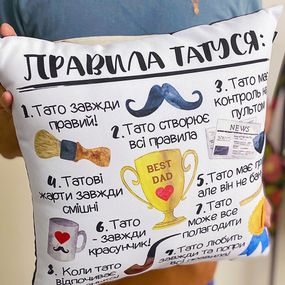 ПРАВИЛА ТАТУСЯ:
1. Тато завжди
правий!
2. Тато створює
всі правила
3. Тато має
контроль н
пультом
NEWS
BEST
DAD
4. Татові
жарти завжди
смішні
5. Тато має п
але він не бан
6. Тато
- завжди
красунчик!
7. Тато
може все
полагодити
8. Коли тато
відпочиває,
9. Тато любить
завжди та попри
всі правила!